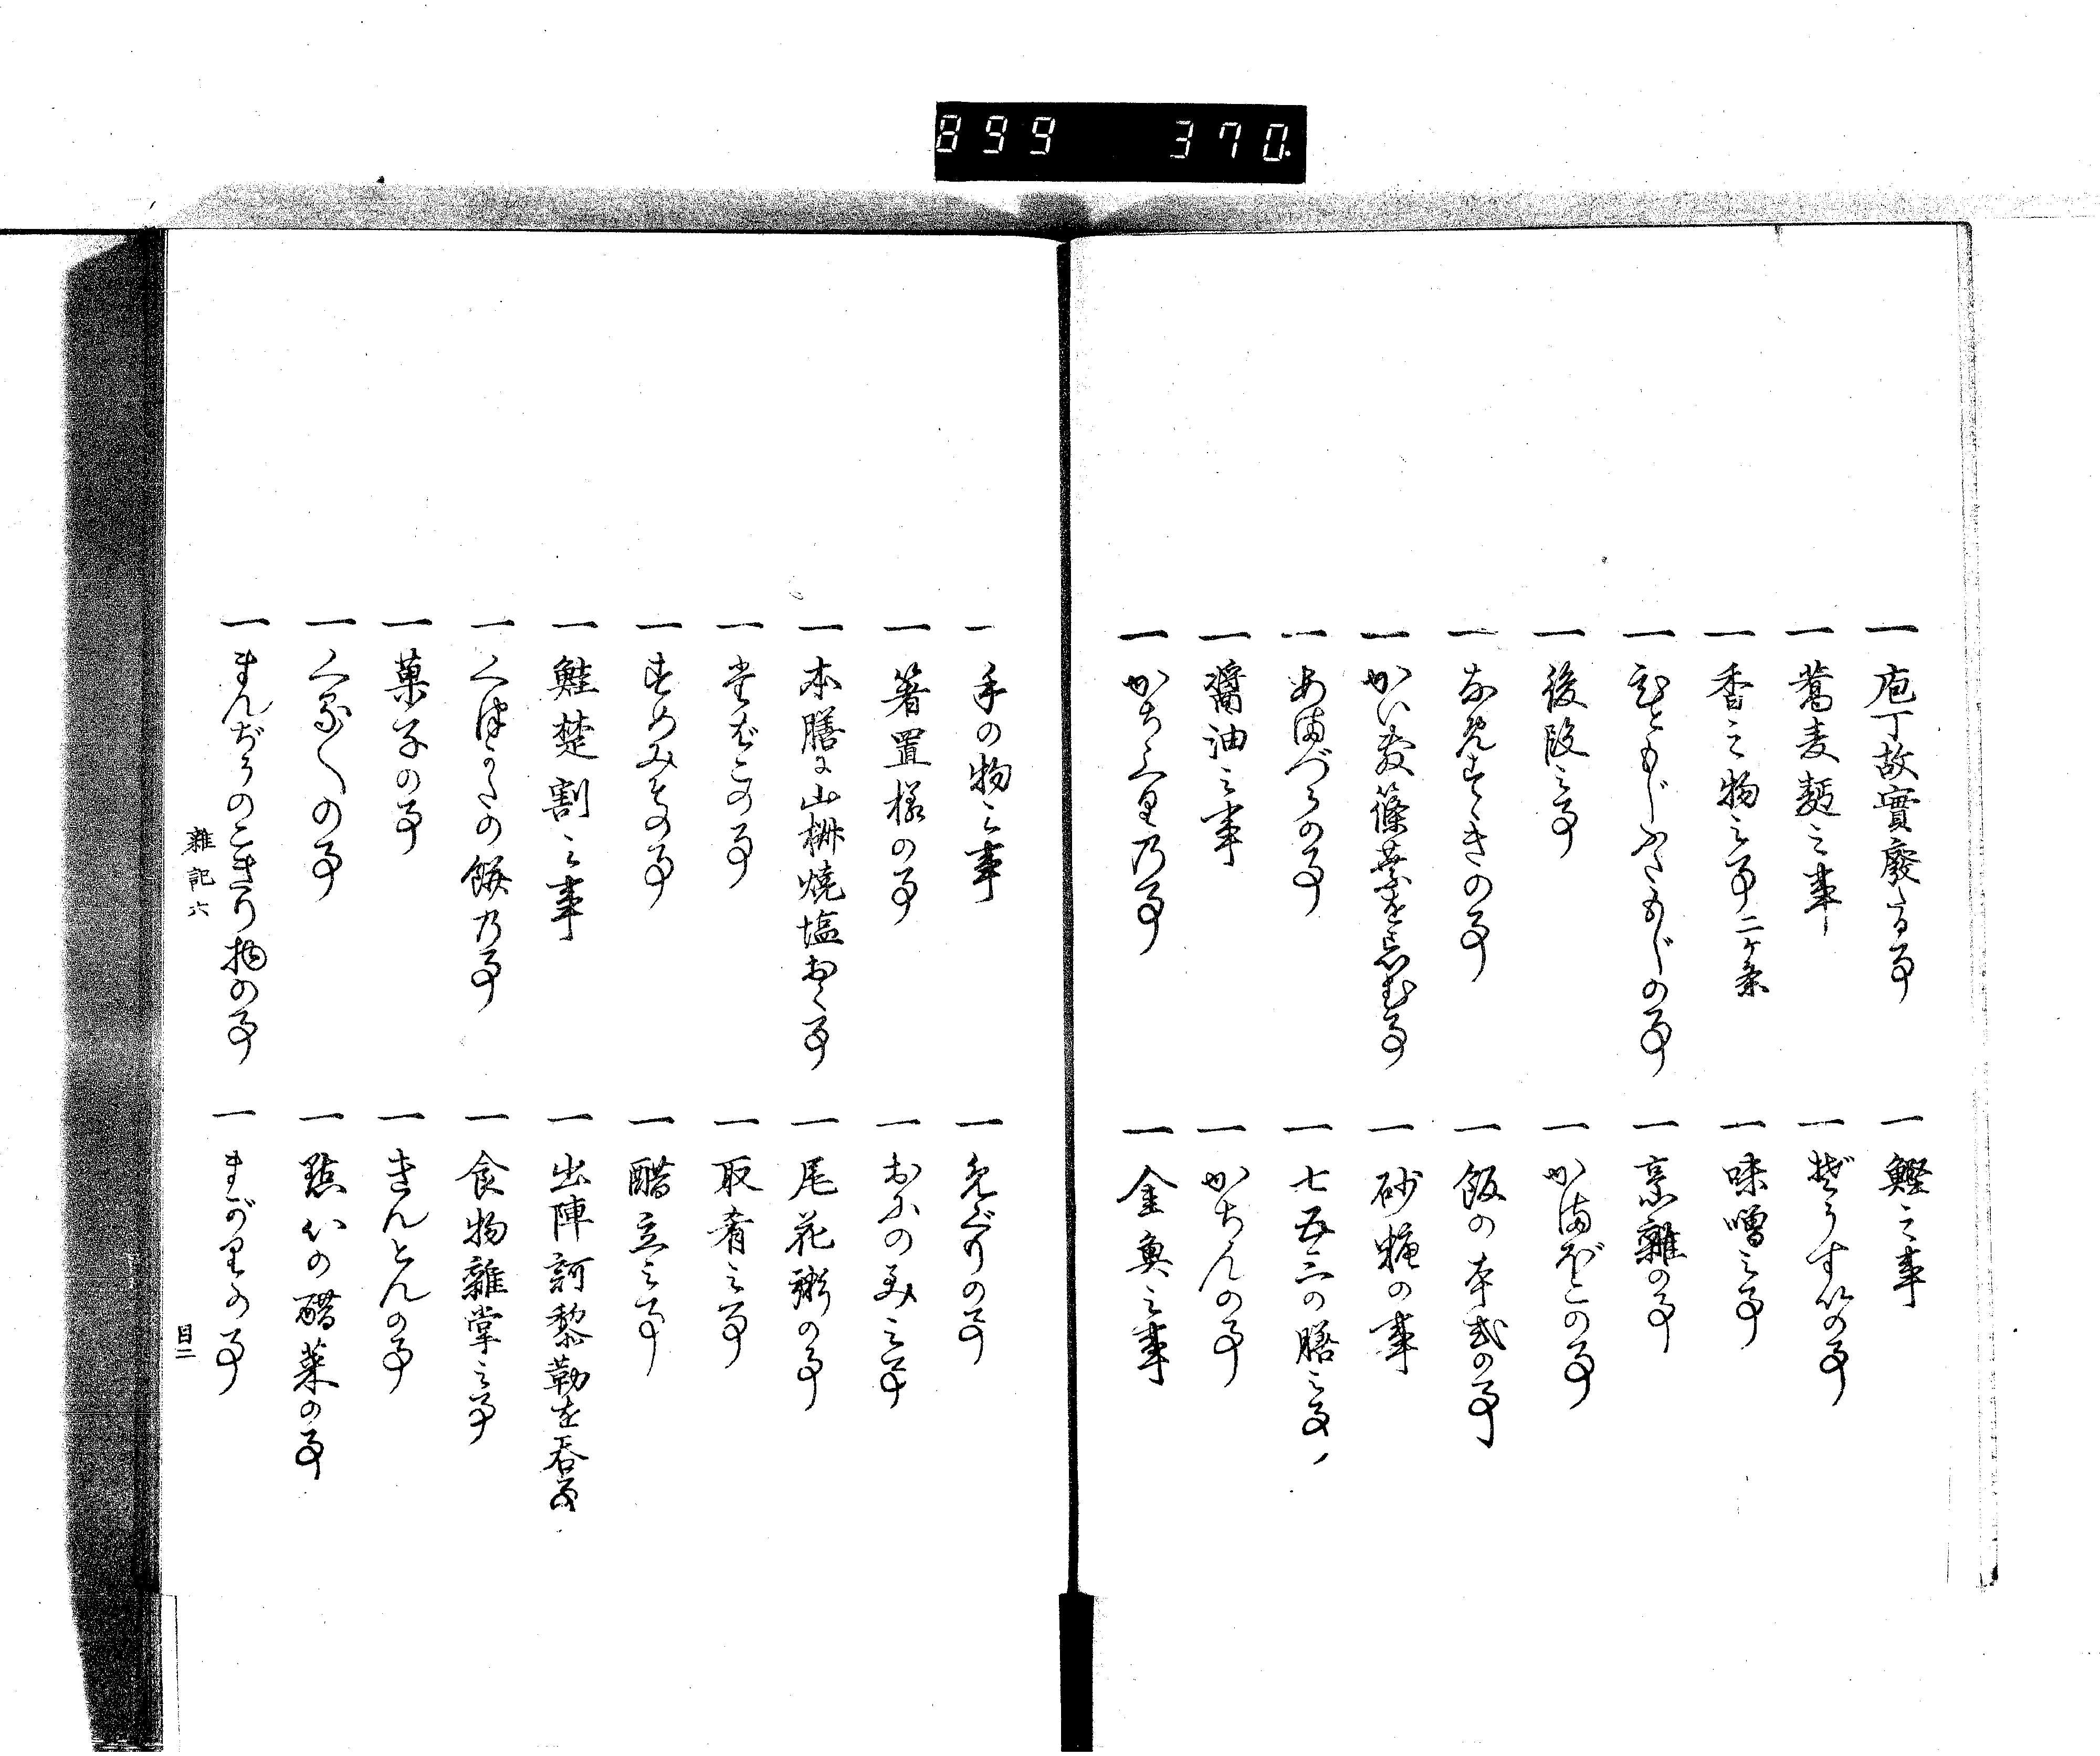 一 庖丁故實廢る事
一 鰹之事
一 蕎麦麪之事
一 ぞうすいの事
一 香之物之事二ケ条
一 味噌之事
一 ひともじふたもじの事
一 烹雜の事
一 後段之事
一 かまぼこの事
一 なめすゝきの事
一 飯の本式の事
一 かい敷篠葉を忌む事
一 砂糖の事
一 あまづらの事
一 七五三の膳之事
一 醤油之事
一 かちんの事
一 乃事
一 金魚之事
一 手の物之事
一 めぐりの事
一 箸置様の事
一 おにのみ之事
一 本膳に山椒焼塩おく事
一 尾花粥の事
一 たばこの事
一 取肴之事
一 すめみその事
一 醋立之事
一 鮭楚割之事
一 出陣訶黎勒を呑事
一 くつかたの餅乃事
一 食物雜掌之事
一 菓子の事
一 きんとんの事
一 くる〱の事
一 點心の醋菜の事
一 まんぢうのこきり物の事
一 まがりの事
雜記六
目二
899 370